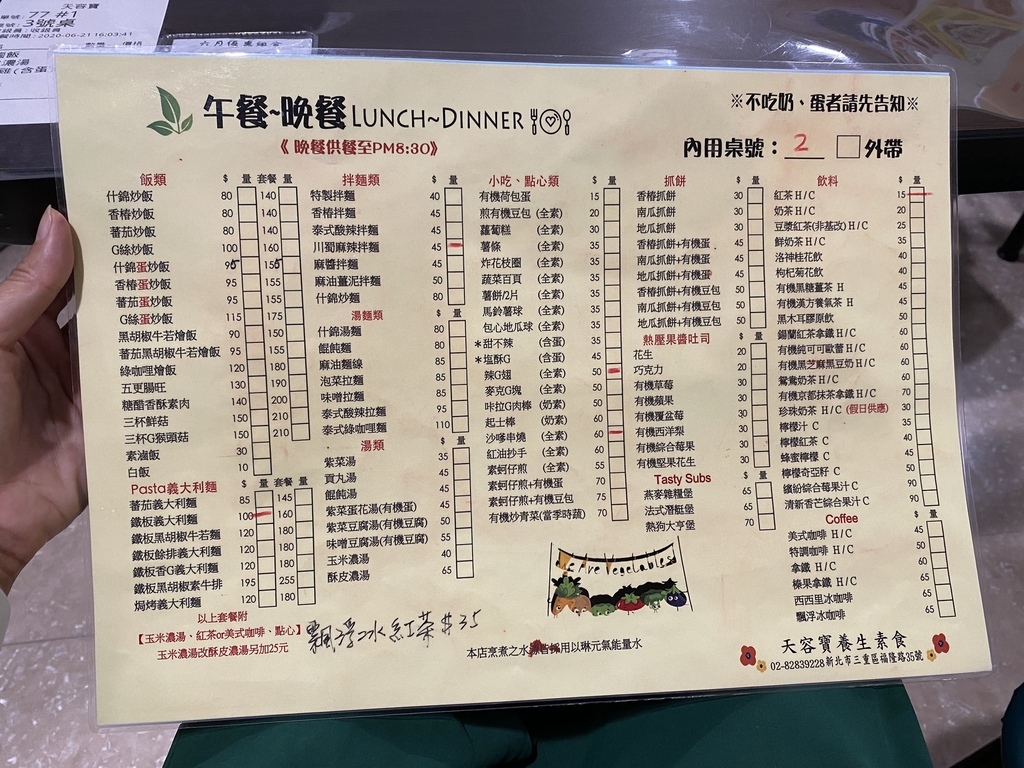 天容寶
77 #1
3號桌
收銀員
2020-06-21 16:03:41
午餐~晚餐 LUNCH~DINNER
※不吃奶、蛋者請先告知※
《 晚餐供餐至PM8:30》
內用桌號： 2 □外帶
飯類 $ 量 套餐 量
什錦炒飯 80 140
香椿炒飯 80 140
蕃茄炒飯 80 140
G絲炒飯 100 160
什錦蛋炒飯 95 155
香椿蛋炒飯 95 155
蕃茄蛋炒飯 95 155
G絲蛋炒飯 115 175
黑胡椒牛若燴飯 90 150
蕃茄黑胡椒牛若燴飯 95 155
綠咖哩燴飯 120 180
五更腸旺 130 190
糖醋香酥素肉 140 200
三杯鮮菇 150 210
三杯G猴頭菇 150 210
素滷飯 30
白飯 10
Pasta義大利麵 $ 量 套餐 量
蕃茄義大利麵 85 145
鐵板義大利麵 100 160
鐵板黑胡椒牛若麵 120 180
鐵板餘排義大利麵 120 180
鐵板香G義大利麵 120 180
鐵板黑胡椒素牛排 195 255
焗烤義大利麵 120 180
以上套餐附
【玉米濃湯、紅茶or美式咖啡、點心】
玉米濃湯改酥皮濃湯另加25元
拌麵類 $ 量
特製拌麵 40
香椿拌麵 40
泰式酸辣拌麵 45
川蜀麻辣拌麵 45
麻醬拌麵 45
麻油薑泥拌麵 50
什錦炒麵 80
湯麵類 $ 量
什錦湯麵 80
餛飩麵 80
麻油麵線 80
泡菜拉麵 85
味噌拉麵 85
泰式酸辣拉麵 95
泰式綠咖哩麵 110
湯類 $ 量
紫菜湯 35
貢丸湯 45
餛飩湯 45
紫菜蛋花湯(有機蛋) 45
紫菜豆腐湯(有機豆腐) 50
味噌豆腐湯(有機豆腐) 55
玉米濃湯 40
酥皮濃湯 65
飄浮冰紅茶 $35
小吃、點心類 $ 量
有機荷包蛋 15
煎有機豆包 (全素) 20
蘿蔔糕 (全素) 30
薯條 (全素) 35
炸花枝圈 (全素) 35
蔬菜百頁 (全素) 35
薯餅/2片 (全素) 35
馬鈴薯球 (全素) 35
包心地瓜球 (全素) 35
*甜不辣 (含蛋) 35
*塩酥G (含蛋) 45
辣G翅 (全素) 50
麥克G塊 (全素) 50
咔拉G肉棒 (奶素) 50
起士棒 (奶素) 50
沙嗲串燒 (全素) 60
紅油抄手 (全素) 60
素蚵仔煎 (全素) 55
素蚵仔煎+有機蛋 70
素蚵仔煎+有機豆包 75
有機炒青菜(當季時蔬) 70
本店烹煮之水源皆採用以琳元氣能量水
抓餅 $ 量
香椿抓餅 30
南瓜抓餅 30
地瓜抓餅 30
香椿抓餅+有機蛋 45
南瓜抓餅+有機蛋 45
地瓜抓餅+有機蛋 45
香椿抓餅+有機豆包 50
南瓜抓餅+有機豆包 50
地瓜抓餅+有機豆包 50
熱壓果醬吐司 $ 量
花生 20
巧克力 20
有機草莓 30
有機蘋果 30
有機覆盆莓 30
有機西洋梨 30
有機綜合莓果 30
有機堅果花生 30
Tasty Subs $ 量
燕麥雜糧堡 65
法式潛艇堡 65
熱狗大亨堡 70
We Are Vegetables
飲料 $ 量
紅茶 H/C 15
奶茶 H/C 20
豆漿紅茶(非基改) H/C 25
鮮奶茶 H/C 35
洛神桂花飲 40
枸杞菊花飲 40
有機黑糖薑茶 H 45
有機漢方養氣茶 H 45
黑木耳膠原飲 45
錫蘭紅茶拿鐵 H/C 60
有機純可可歐蕾 H/C 60
有機黑芝麻黑豆奶 H/C 60
鴛鴦奶茶 H/C 50
有機京都抹茶拿鐵 H/C 60
珍珠奶茶 H/C (假日供應) 30
檸檬汁 C 35
檸檬紅茶 C 40
蜂蜜檸檬 C 45
檸檬奇亞籽 C 50
繽紛綜合莓果汁 C 90
清新香芒綜合果汁 C 90
Coffee $ 量
美式咖啡 H/C 45
特調咖啡 H/C 50
拿鐵 H/C 60
榛果拿鐵 H/C 65
西西里冰咖啡 65
飄浮冰咖啡 65
天容寶養生素食
02-82839228 新北市三重區福隆路35號